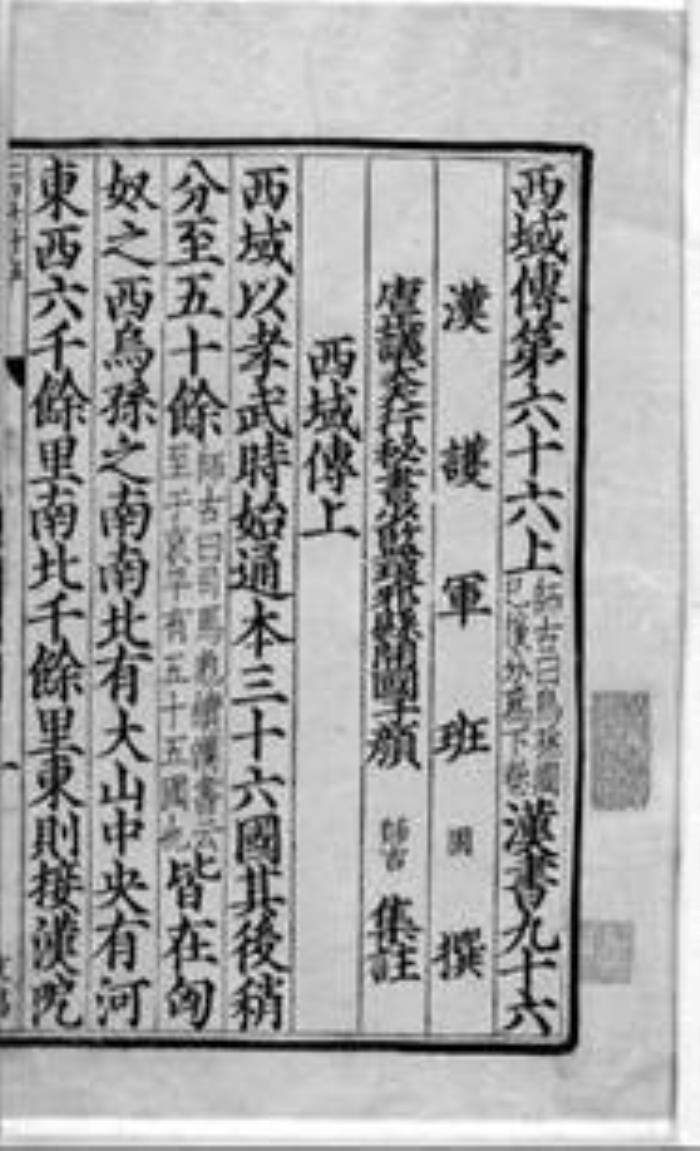 西域傳第六十六上 師古曰烏孫國已後分爲下卷 漢書九十六
漢護軍班固撰
唐議大行祕書少監琅邪縣開國子顏師古集註
西域傳上
西域以孝武時始通本三十六國其後稍
分至五十餘 師古曰司馬彪續漢書云至于哀平有五十五國也 皆在匈
奴之西烏孫之南南北有大山中央有河
東西六千餘里南北千餘里東則接漢阸